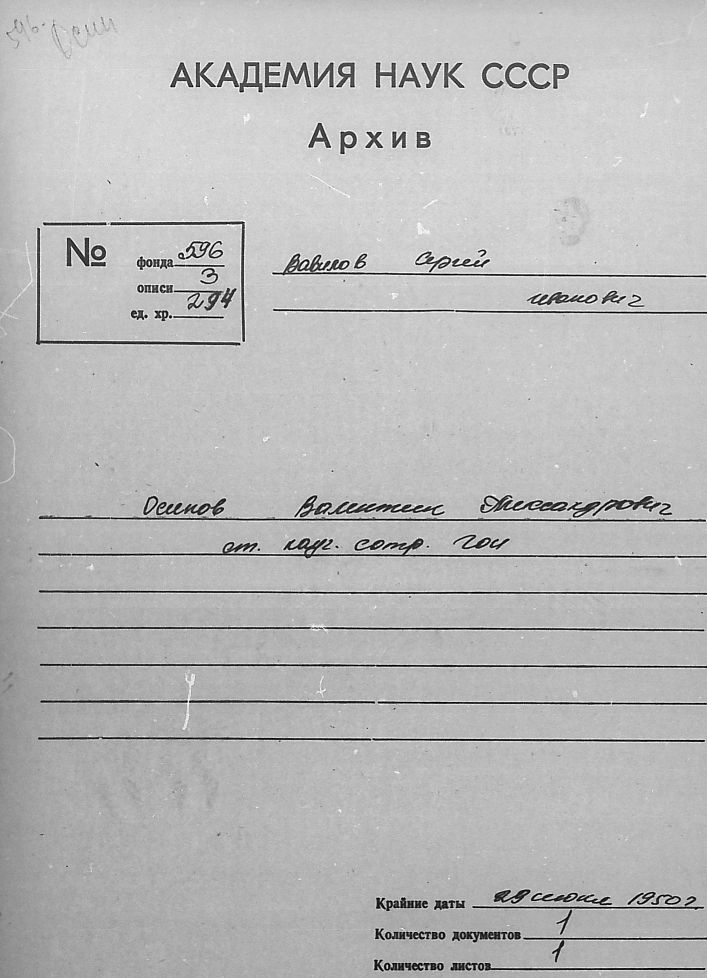 596.
АКАДЕМИЯ НАУК СССР
Архив
№
фонда 596
описи 3
ед. хр. 294
Вавилов Сергей
Иванович
Осипов Валентин Александрович
ст. науч. сотр. ГОИ
Крайние даты 29 июня 1950 г.
Количество документов 1
Количество листов 1